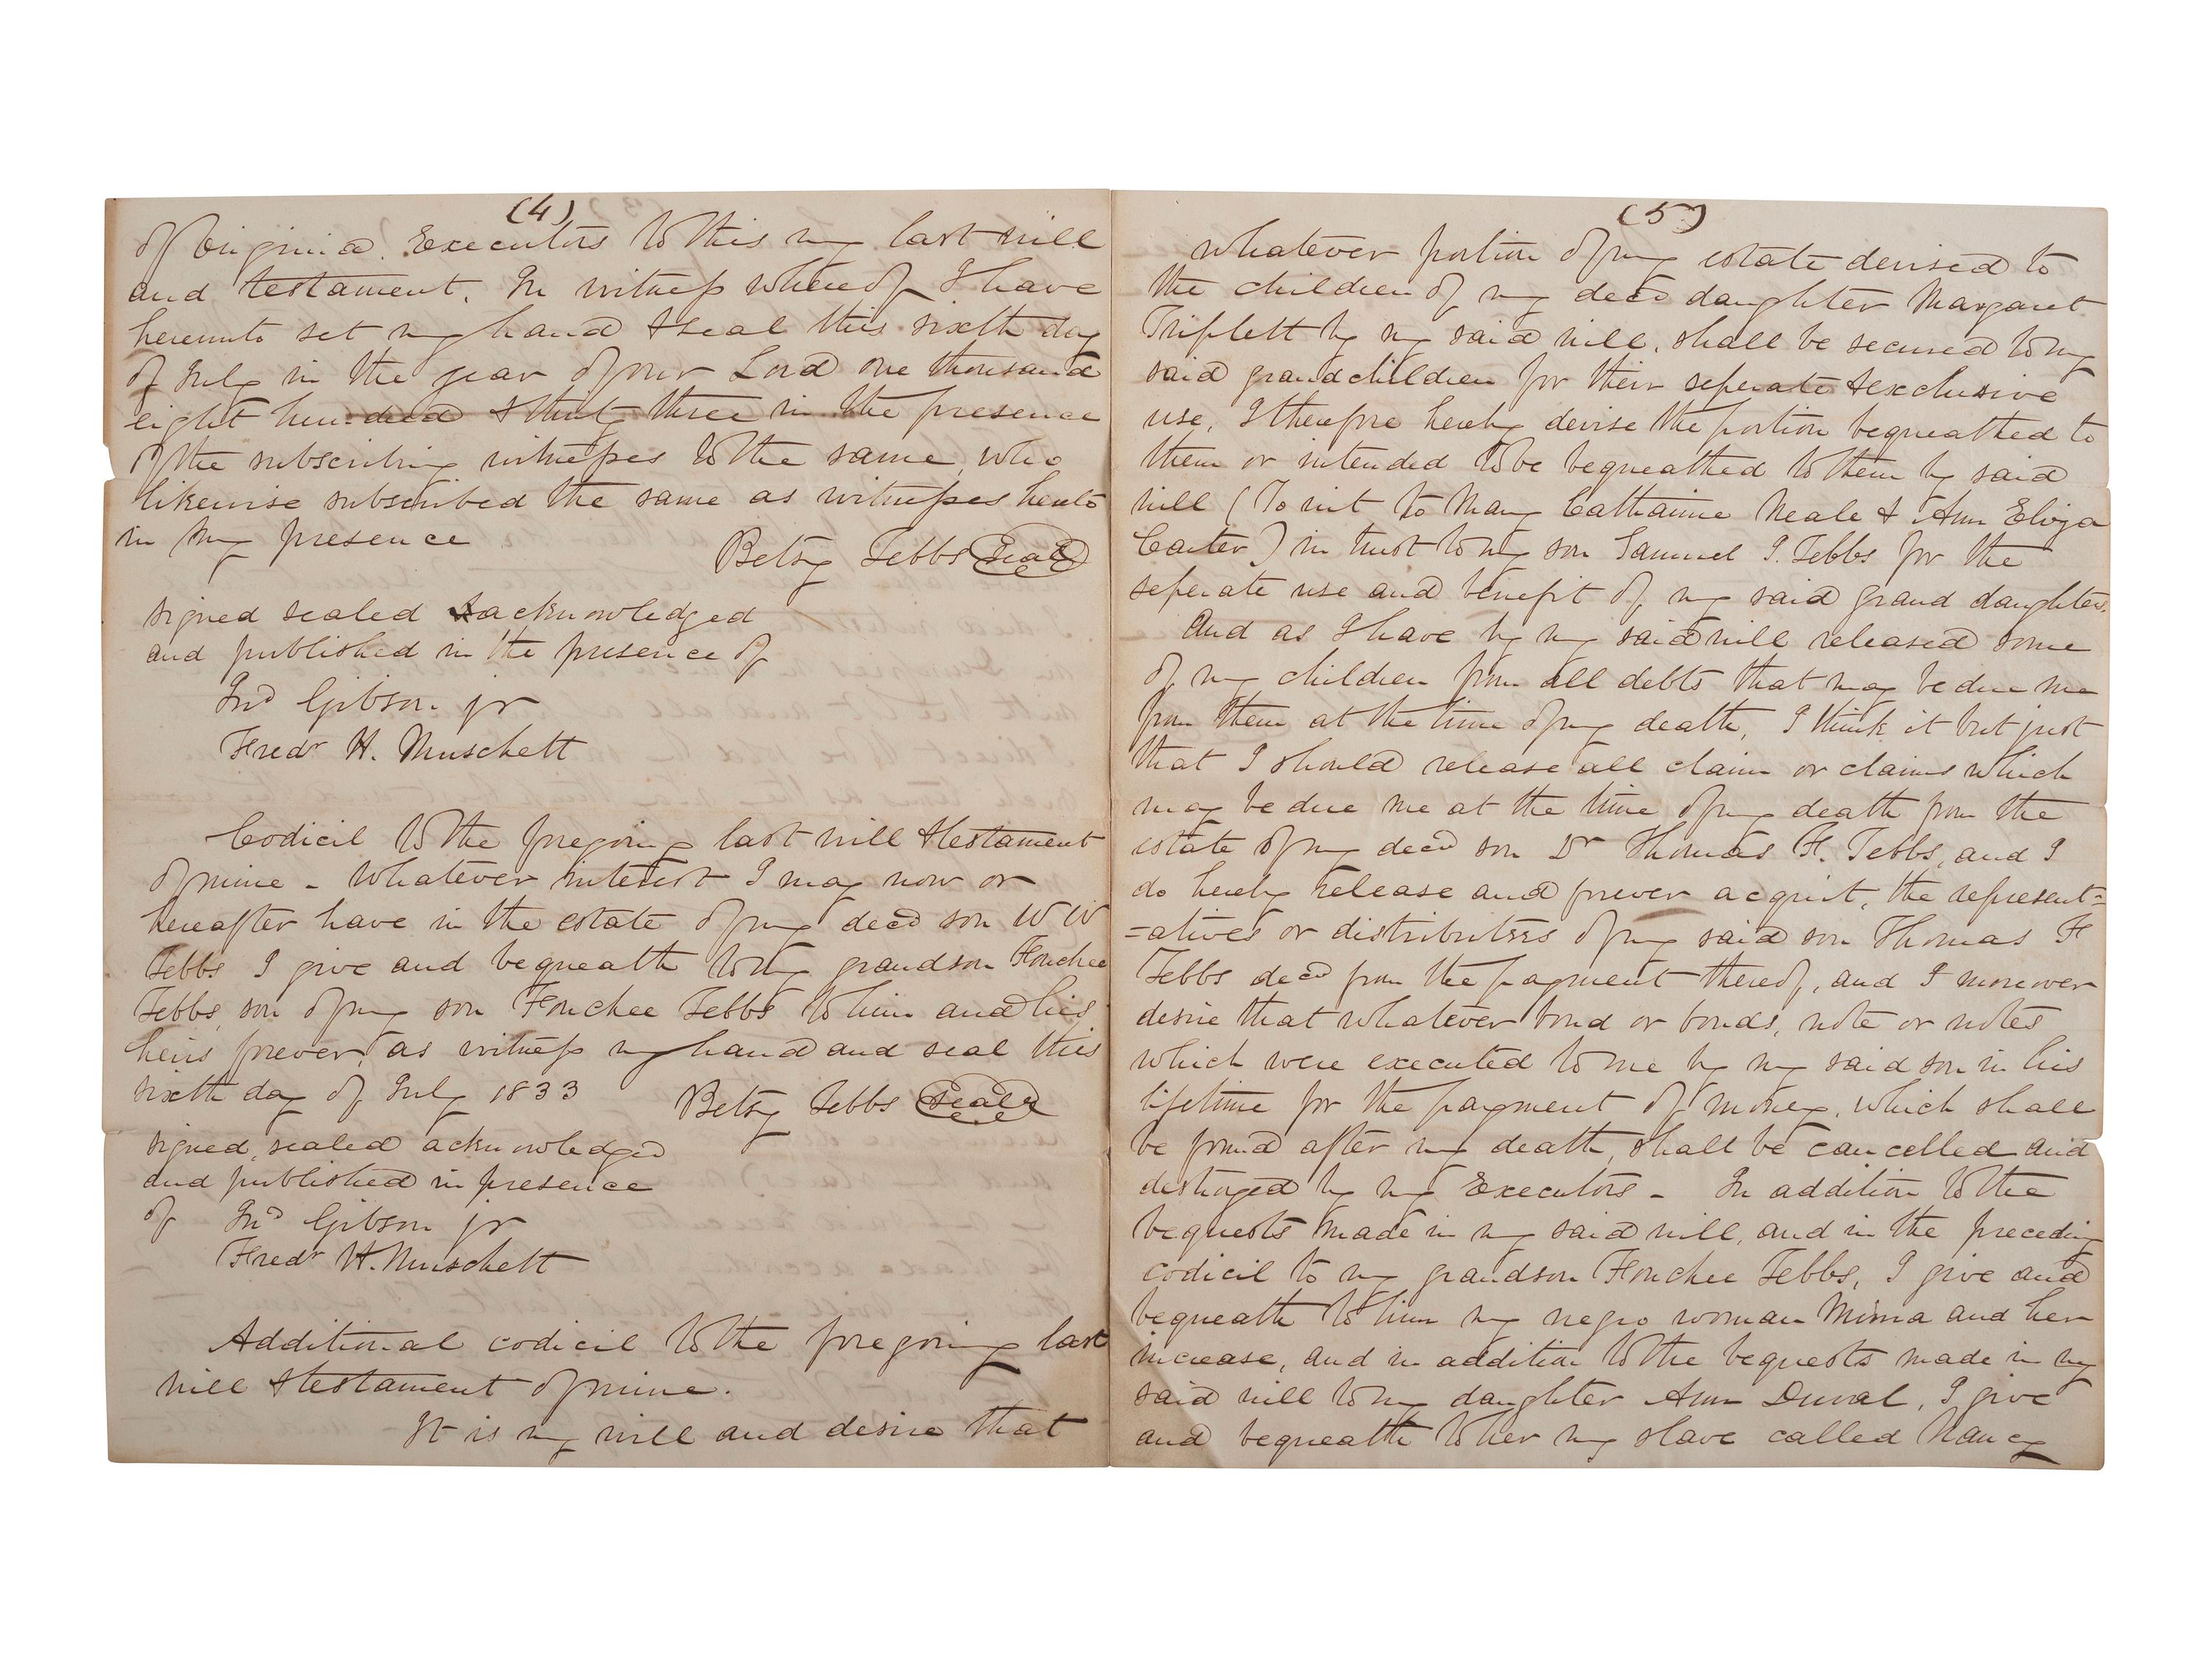 (4)
of Virginia. Executors to this my last will
and testament. In witness whereof I have
hereunto set my hand & seal this sixth day
of July in the year of our Lord one thousand
eight hundred & thirty three in the presence
of the subscribing witnesses to the same, who
likewise subscribed the same as witnesses hereto
in my presence
Betsy Tebbs Seal
signed sealed & acknowledged
and published in the presence of
Jno Gibson jr
Fredr H. Muschett
Codicil to the foregoing last will & testament
of mine - Whatever interest I may now or
hereafter have in the estate of my decd son W W
Tebbs I give and bequeath to my grandson Fouchee
Tebbs, son of my son Fouchee Tebbs to him and his
heirs forever, as witness my hand and seal this
sixth day of July 1833
Betsy Tebbs Seal
signed, sealed acknowledged
and published in presence
of Jno Gibson jr
Fredr H. Muschett
Additional codicil to the foregoing last
will & testament of mine.
It is my will and desire that
(5)
whatever portion of my estate devised to
the children of my decd daughter Margaret
Triplett by my said will, shall be secured to my
said grandchildren for their seperate & exclusive
use, I therefore hereby devise the portion bequeathed to
them or intended to be bequeathed to them by said
will (To wit to Mary Catharine Neale & Ann Eliza
Carter) in trust to my son Samuel J. Tebbs for the
seperate use and benefit of my said grand daughters.
And as I have by my said will released some
of my children from all debts that may be due me
from them at the time of my death, I think it but just
that I should release all claim or claims which
may be due me at the time of my death from the
estate of my decd son Dr Thomas F. Tebbs, and I
do hereby release and forever acquit, the represent=
=atives or distributees of my said son Thomas F
Tebbs decd from the payment thereof, and I moreover
desire that whatever bond or bonds, note or notes
which were executed to me by my said son in his
lifetime for the payment of money, which shall
be found after my death, shall be cancelled and
destroyed by my Executors - In addition to the
bequests made in my said will, and in the preceding
codicil to my grandson Fouchee Tebbs, I give and
bequeath to him my negro woman Mima and her
increase, and in addition to the bequests made in my
said will to my daughter Ann Duval, I give
and bequeath to her my slave called Nancy